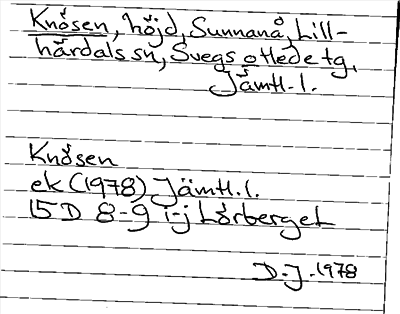 Knösen, höjd, Sunnanå, Lill-
härdals sn, Svegs otledetg,
Jämtl. l.
Knösen
ek (1978) Jämtl. l.
15D 8-9 i-j Lörberget
D.J. 1978